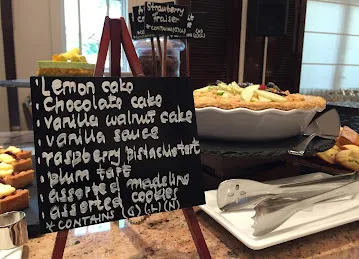 Strawberry
Fraisier
Lemon cake
Chocolate cake
vanilla walnut cake
vanilla sauce
raspberry pistachio tart
plum tart
assorted madeline
assorted cookies
*CONTAINS (G)(L)(N)